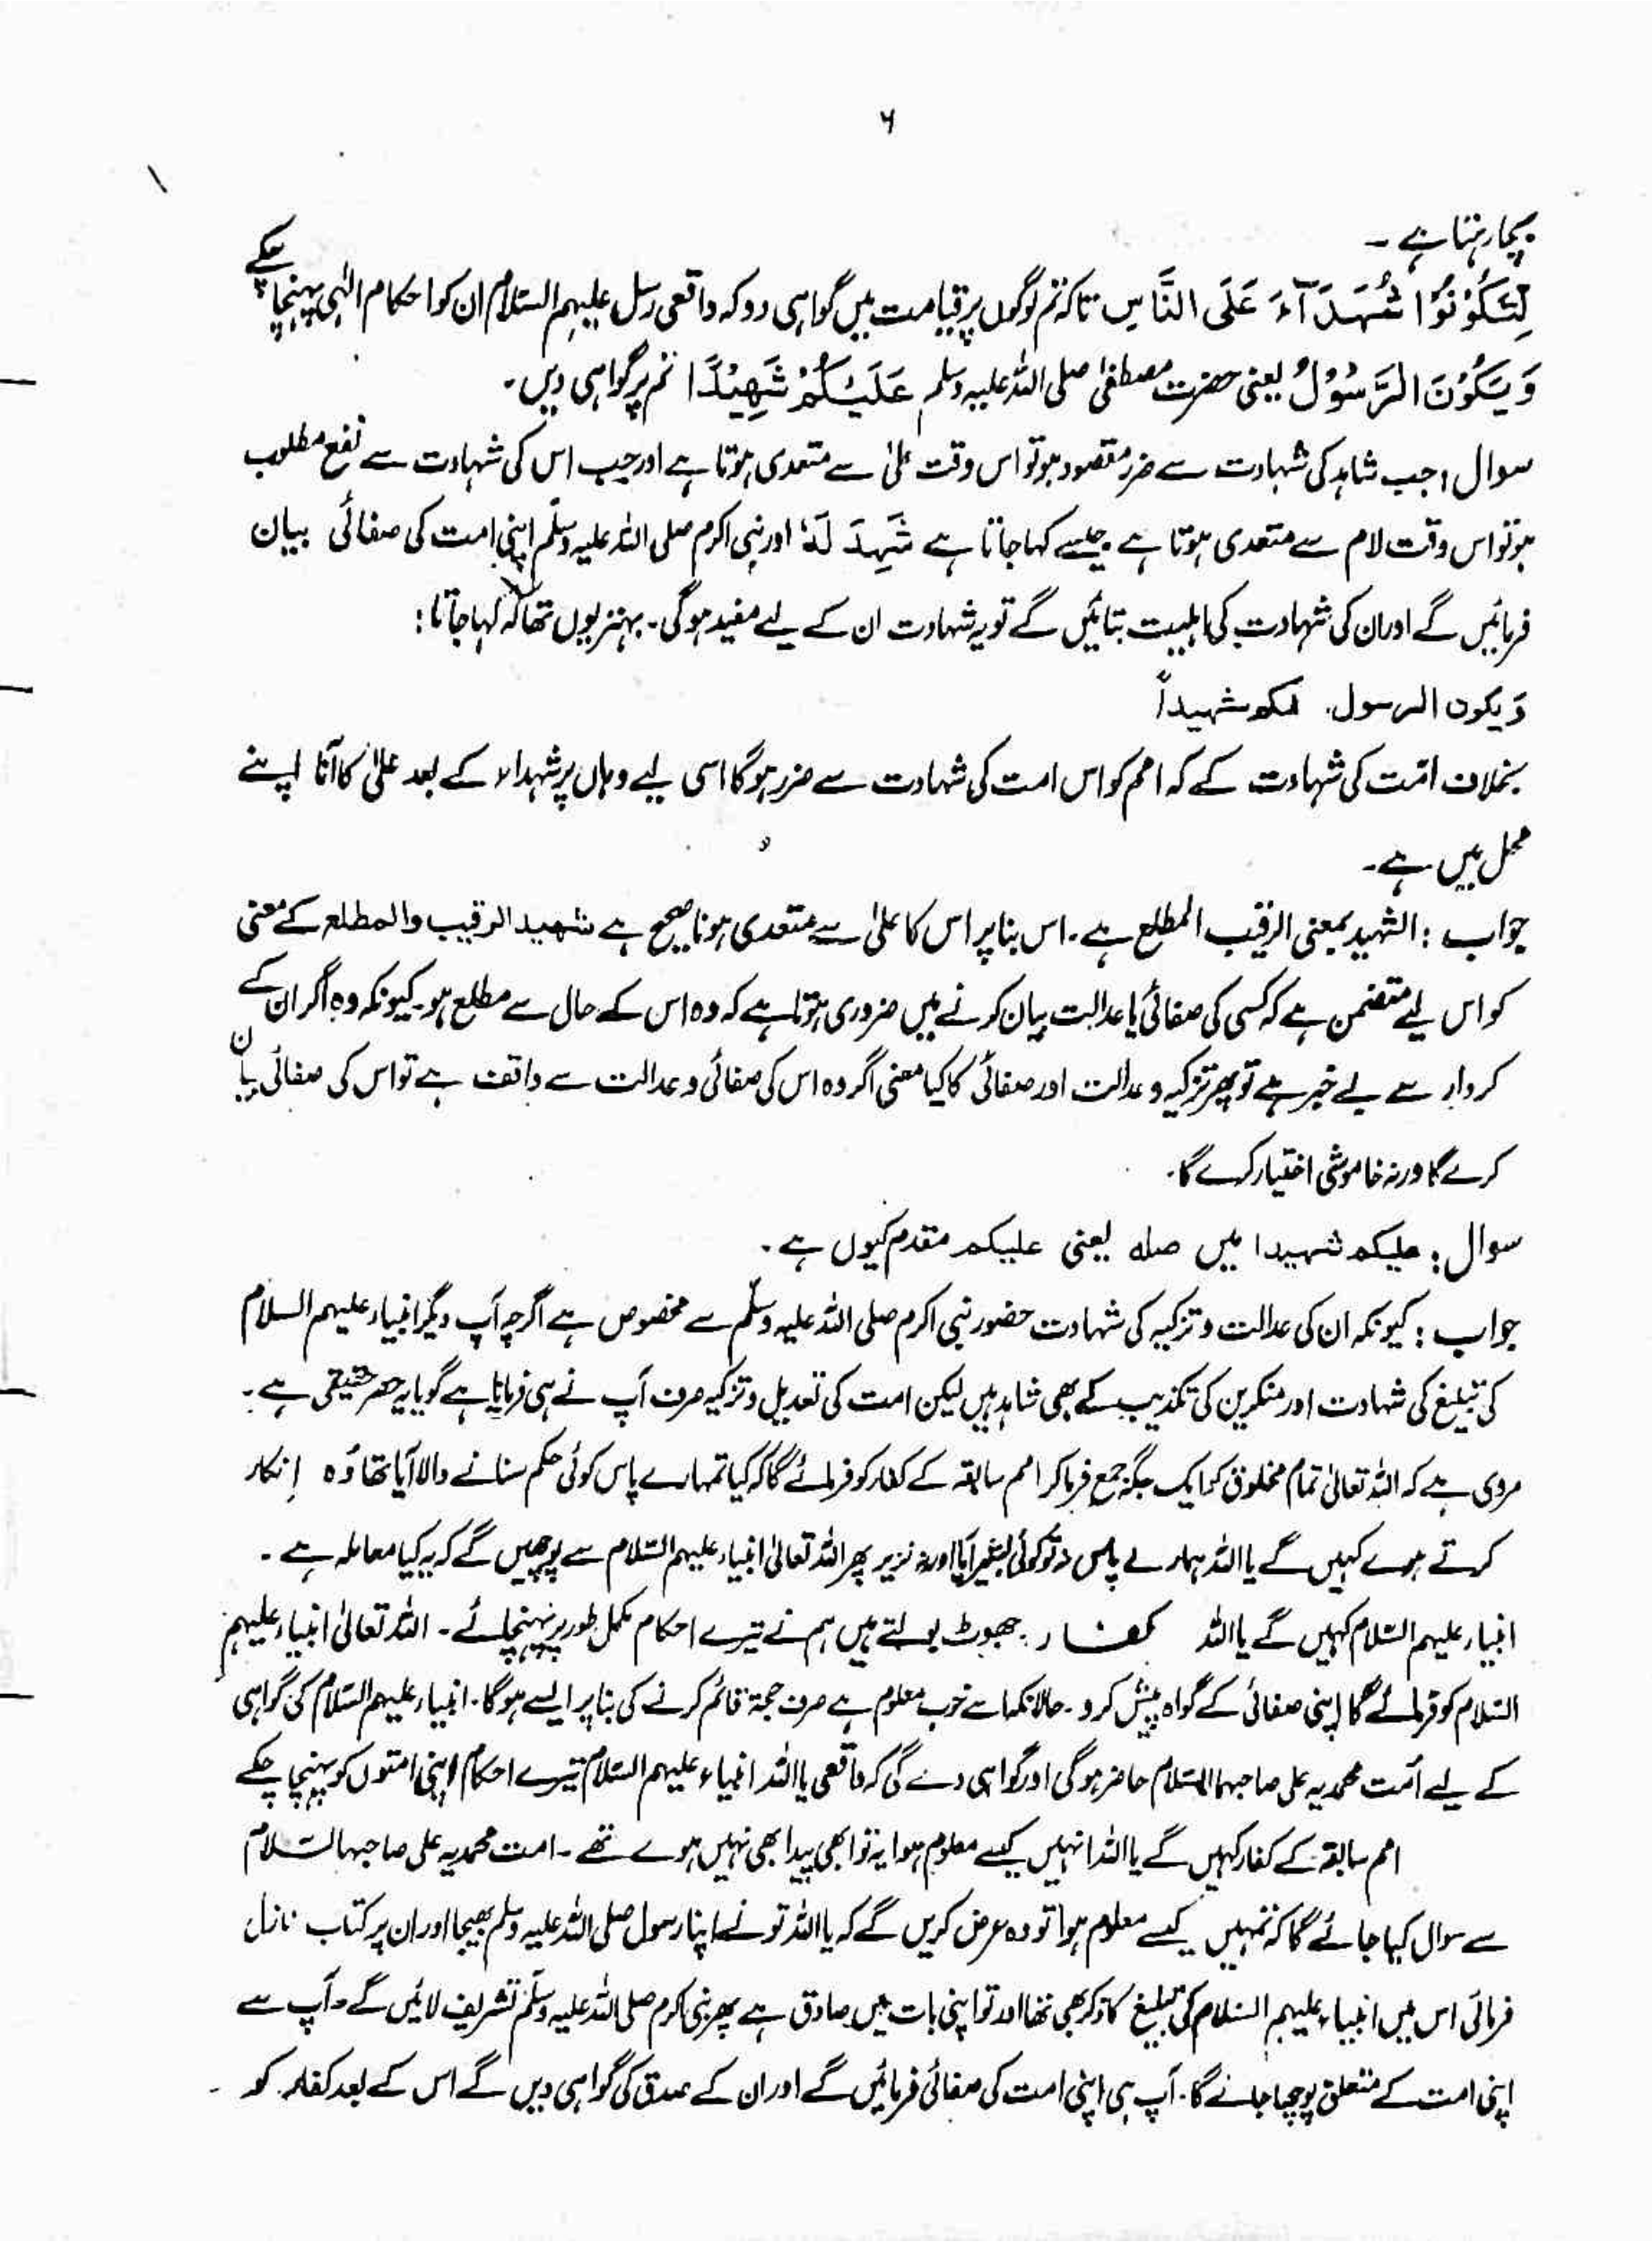 ۶
بچا رہتا ہے ۔
لِتَكُوْنُوْا شُهَدَآءَ عَلَى النَّاسِ تاکہ تم لوگوں پر قیامت میں گواہی دو کہ واقعی رسل علیہم السّلام ان کو احکام الٰہی پہنچا چکے
وَيَكُوْنَ الرَّسُوْلُ یعنی حضرت مصطفٰی صلی اللہ علیہ وسلم عَلَيْكُمْ شَهِيْدًا تم پر گواہی دیں ۔
سوال : جب شاہد کی شہادت سے ضرر مقصود ہو تو اس وقت علیٰ سے متعدی ہوتا ہے اور جب اس کی شہادت سے نفع مطلوب
ہو تو اس وقت لام سے متعدی ہوتا ہے جیسے کہا جاتا ہے شَهِدَ لَهٗ اور نبی اکرم صلی اللہ علیہ وسلّم اپنی امت کی صفائی بیان
فرمائیں گے اور ان کی شہادت کی اہلیت بتائیں گے تو یہ شہادت ان کے لیے مفید ہوگی ۔ بہتر یوں تھا کہ کہا جاتا :
وَيكون الرسول لكم شهيداً
بخلاف امّت کی شہادت کے کہ امم کو اس امت کی شہادت سے ضرر ہوگا اسی لیے وہاں پر شہداء کے بعد علیٰ کا آنا اپنے
محل میں ہے ۔
جواب : الشہید بمعنی الرقیب المطلع ہے ۔ اس بنا پر اس کا علیٰ سے متعدی ہونا صحیح ہے شهيد الرقيب والمطلع کے معنی
کو اس لیے متضمن ہے کہ کسی کی صفائی یا عدالت بیان کرنے میں ضروری ہوتا ہے کہ وہ اس کے حال سے مطلع ہو ۔ کیونکہ وہ اگر ان کے
کردار سے بے خبر ہے تو پھر تزکیہ و عدالت اور صفائی کا کیا معنی اگر وہ اس کی صفائی و عدالت سے واقف ہے تو اس کی صفائی بیان
کرے گا ورنہ خاموشی اختیار کرے گا ۔
سوال : عليكم شهيدا میں صلہ یعنی عليكم مقدم کیوں ہے ۔
جواب : کیونکہ ان کی عدالت و تزکیہ کی شہادت حضور نبی اکرم صلی اللہ علیہ وسلّم سے مخصوص ہے اگرچہ آپ دیگر انبیاء علیہم السلام
کی تبلیغ کی شہادت اور منکرین کی تکذیب کے بھی شاہد ہیں لیکن امت کی تعدیل و تزکیہ صرف آپ نے ہی فرمانا ہے گویا یہ حصر حقیقی ہے ۔
مروی ہے کہ اللہ تعالیٰ تمام مخلوق کو ایک جگہ جمع فرما کر امم سابقہ کے کفار کو فرمائے گا کہ کیا تمہارے پاس کوئی حکم سنانے والا آیا تھا وُہ اِنکار
کرتے ہوے کہیں گے یا اللہ ہمارے پاس نہ تو کوئی بشیر آیا اور نہ نذیر پھر اللہ تعالیٰ انبیاء علیہم السّلام سے پوچھیں گے کہ یہ کیا معاملہ ہے ۔
انبیاء علیہم السّلام کہیں گے یا اللہ کفار جھوٹ بولتے ہیں ہم نے تیرے احکام مکمل طور پر پہنچائے ۔ اللہ تعالیٰ انبیاء علیہم
السّلام کو فرمائے گا اپنی صفائی کے گواہ پیش کرو ۔ حالانکہ اسے خوب معلوم ہے صرف حجۃ قائم کرنے کی بنا پر ایسے ہوگا ۔ انبیاء علیہم السّلام کی گواہی
کے لیے اُمت محمدیہ علی صاحبہا السّلام حاضر ہوگی اور گواہی دے گی کہ واقعی یا اللہ انبیاء علیہم السّلام تیرے احکام اپنی امتوں کو پہنچا چکے
امم سابقہ کے کفار کہیں گے یا اللہ انہیں کیسے معلوم ہوا یہ تو ابھی پیدا بھی نہیں ہوے تھے ۔ امت محمدیہ علی صاحبہا السّلام
سے سوال کیا جائے گا کہ تمہیں کیسے معلوم ہوا تو وہ عرض کریں گے کہ یا اللہ تو نے اپنا رسول صلی اللہ علیہ وسلم بھیجا اور ان پر کتاب نازل
فرمائی اس میں انبیاء علیہم السّلام کی تبلیغ کا ذکر بھی تھا اور تو اپنی بات میں صادق ہے پھر نبی اکرم صلی اللہ علیہ وسلّم تشریف لائیں گے ۔ آپ سے
اپنی امت کے متعلق پوچھا جائے گا ۔ آپ ہی اپنی امت کی صفائی فرمائیں گے اور ان کے صدق کی گواہی دیں گے اس کے بعد کفار کو